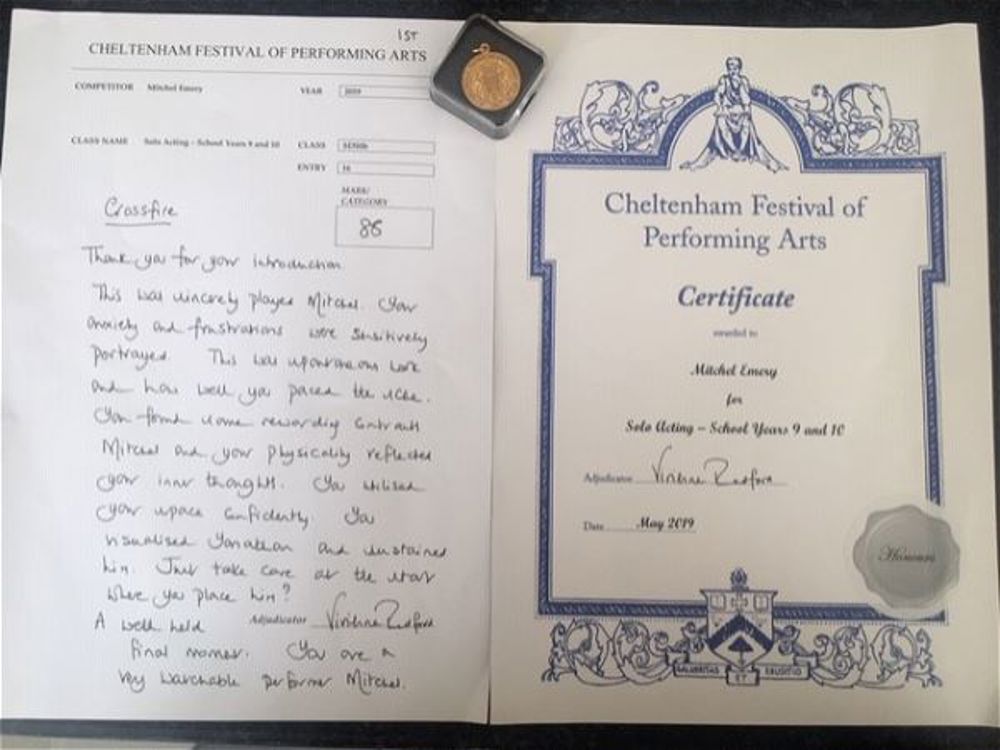 1ST
CHELTENHAM FESTIVAL OF PERFORMING ARTS
COMPETITOR Mitchel Emery YEAR 2019
CLASS NAME Solo Acting - School Years 9 and 10 CLASS
ENTRY 16
MARK/
CATEGORY
86
Crossfire
Thank you for your introduction
This was sincerely played Mitchel. Your
anxiety and frustrations were sensitively
portrayed. This was spontaneous work
and how well you paced the scene.
You found some rewarding contrasts
Mitchel and your physicality reflected
your inner thoughts. You utilised
your space confidently You
visualised Jonathan and sustained
him. Just take care at the start
where you place him?
A well held
Adjudicator
final moment. You are a
very watchable performer Mitchel.
Cheltenham Festival of
Performing Arts
Certificate
awarded to
Mitchel Emery
for
Solo Acting – School Years 9 and 10
Adjudicator
Date May 2019
Honours
SALUBRITAS ET ERUDITIO